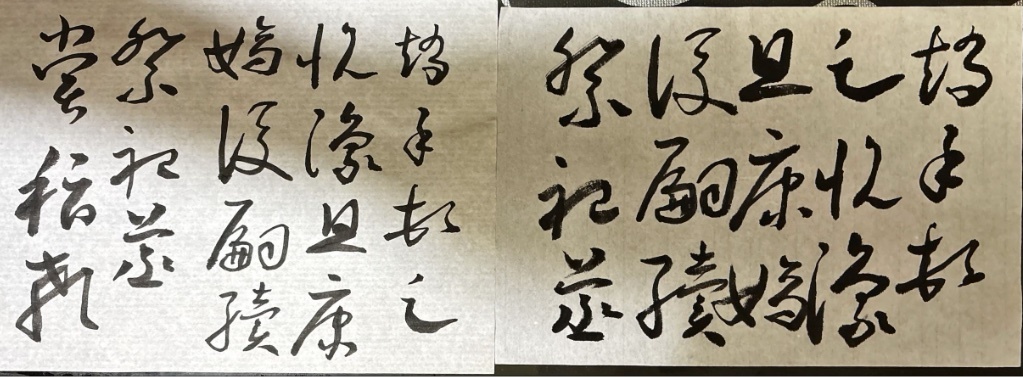 矯手頓足
悅豫且康
嫡後嗣續
祭祀蒸
嘗稽顙
矯手頓
足悅豫
且康嫡
後嗣續
祭祀蒸